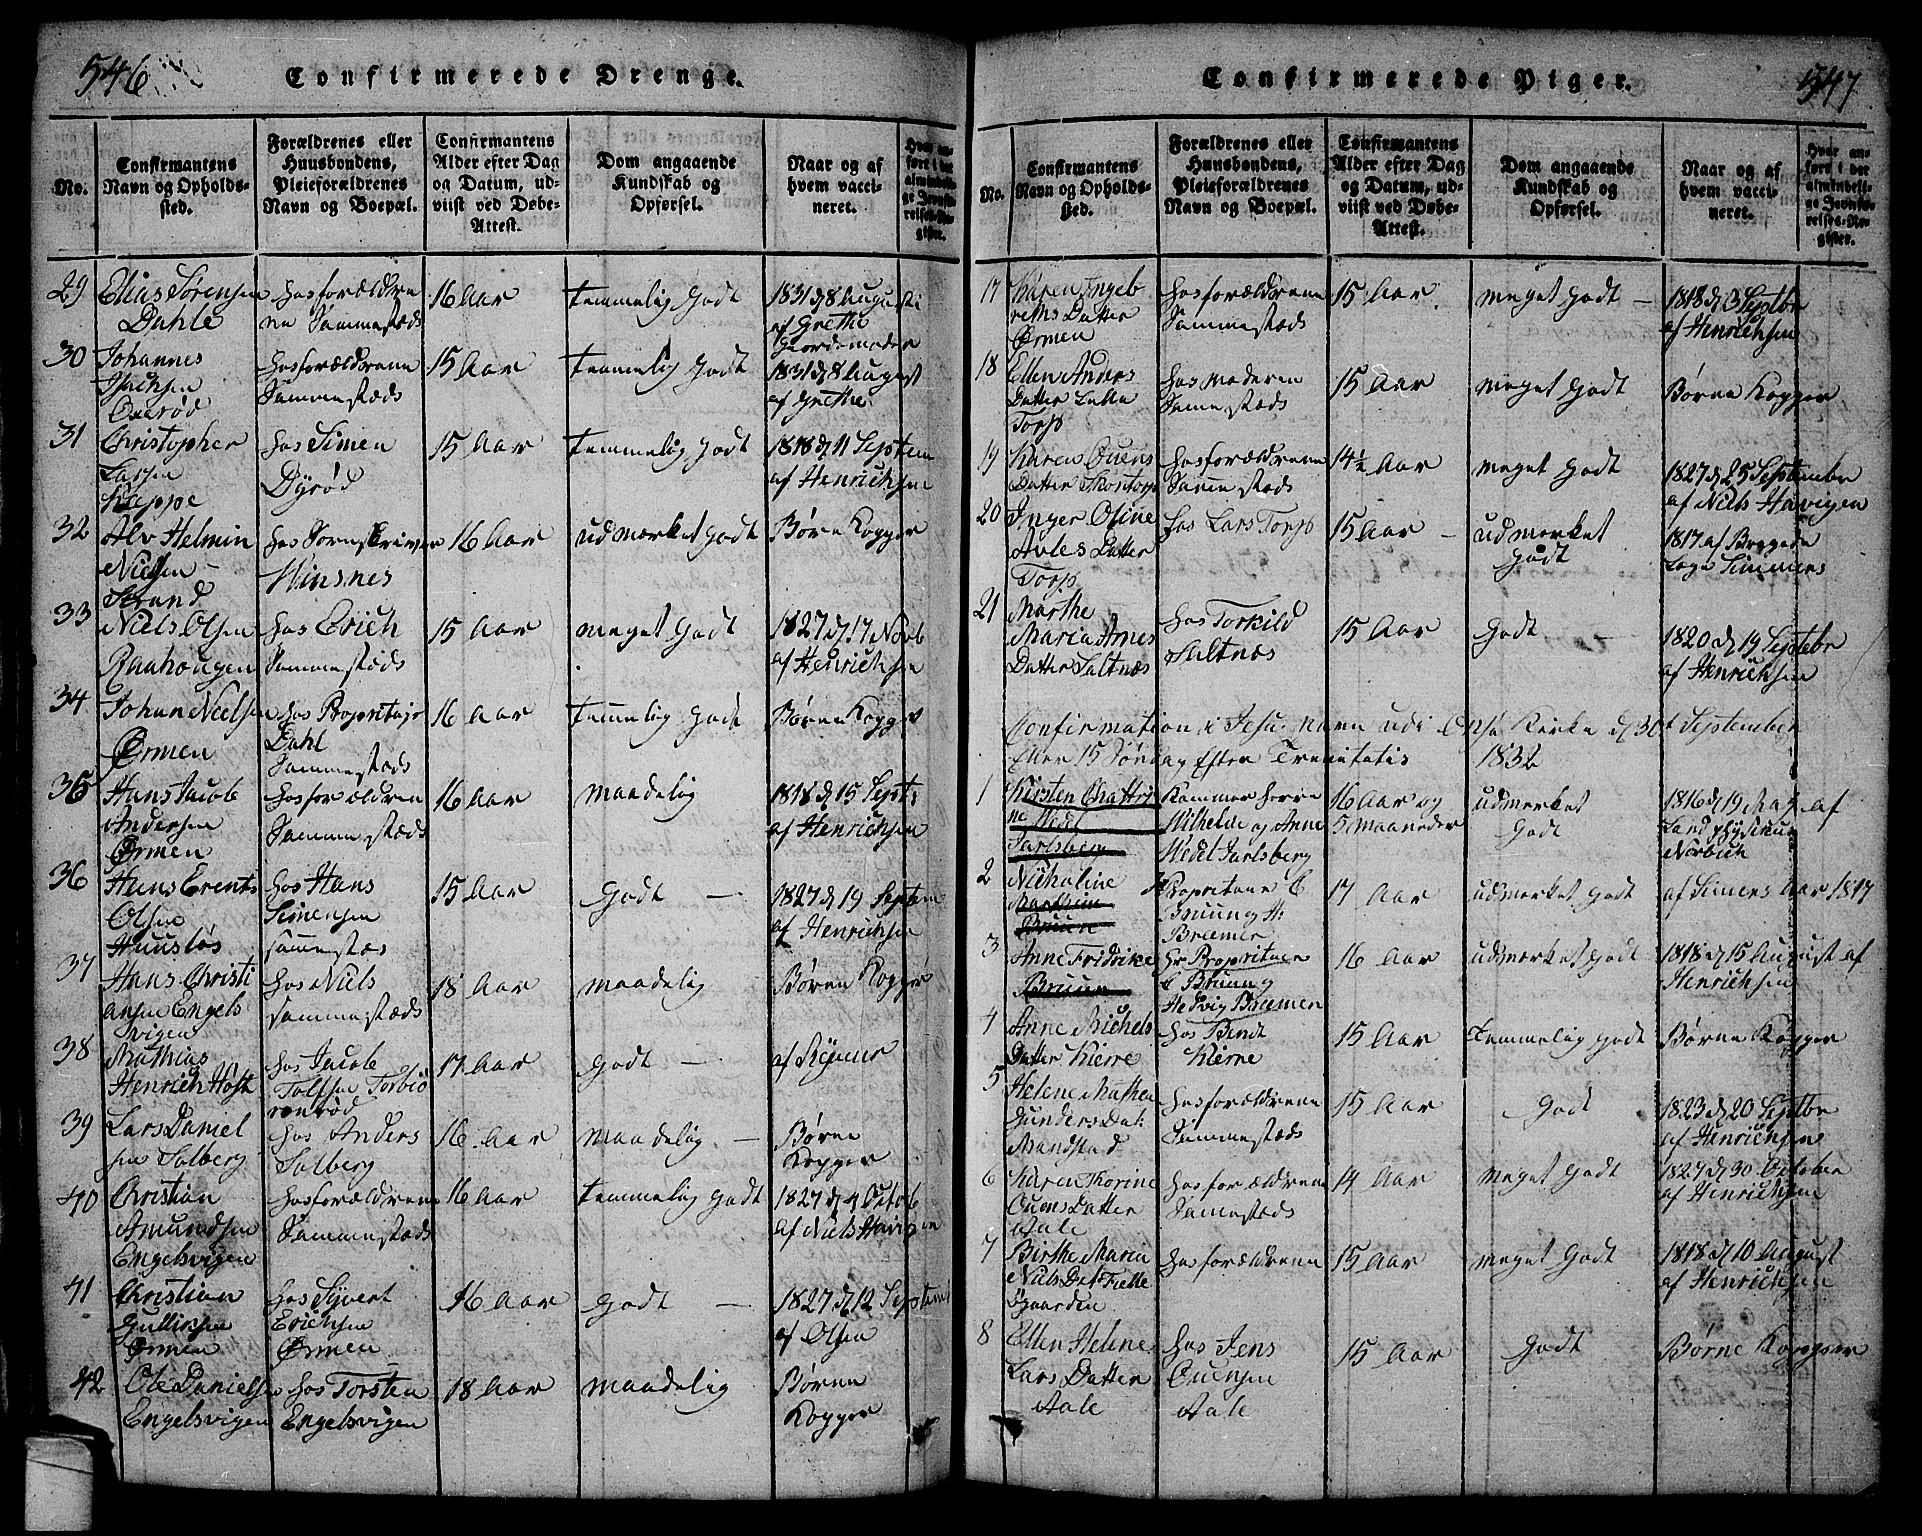 546
Confirmerede Drenge.
No.
Confirmantens
Navn og Opholds-
sted.
Forældrenes eller
Huusbondens,
Pleieforældrenes
Navn og Boepæl.
Confirmantens
Alder efter Dag
og Datum, ud-
viist ved Døbe-
Attest.
Dom angaaende
Kundskab og
Opførsel.
Naar og af
hvem vacci-
neret.
Hvor an-
ført i det
almindeli-
ge Jevnfø-
relses-Re-
gister.
29
Elias Sørensen
Dahle
hos forældre
ne Sammestæds
16 Aar
temmelig godt
1831 d 8 Augusti
af Grethe
Giordemoder
30
Johannes
Isachsen
Oxerød
hos forældrene
Sammestæds
15 Aar
temmelig godt
1831 d 8 August
af Grethe
31
Christopher
Larsen
Kieppe
hos Simen
Dyrød
15 Aar
temmelig godt
1818 d 11 Septem
af Henrichsen
32
Alv Helmin
Nielsen
Strand
hos Sorenskriver
Hinsnes
16 Aar
udmærket godt
Børne Kopper
33
Niels Olsen
Raahougen
hos Erich
Sammestæds
15 Aar
meget godt
1827 d 17 Novb
af Henrichsen
34
Johan Nielsen
Ørmen
hos Propritær
Dahl
Sammestæds
16 Aar
temmelig godt
Børne Kopper
35
Hans Jacob
Andersen
Ørmen
hos forældren
Sammestæds
16 Aar
maadelig
1818 d 15 Sept:
af Henrichsen
36
Hans Erents
Olsen
Huusløs
hos Hans
Simensen
sammestæs
15 Aar
Godt —
1827 d 19 Septem
af Henrichsen
37
Hans Christi
ansen Engels
vigen
hos Niels
sammestæds
18 Aar
maadelig
Børne Kopper
38
Mathias
Henrich Høst
hos Jacob
Tolfsen Torbiø
rnrød
17 Aar
godt —
39
Lars Daniel
sen Solberg
hos Anders
Solberg
16 Aar
maadelig —
Børne
Kopper
40
Christian
Amundsen
Engelsvigen
hos forældrene
Sammestæds
16 Aar
temmelig godt
1827 d 4 Octob
af Niels Havigen
41
Christian
Gulliksen
Ørmen
hos Syvert
Erichsen
Ørmen
16 Aar
godt —
1827 d 12 Septem
af Olsen
42
Ole Danielsen
Engelsvigen
hos Torsten
Engelsvigen
18 Aar
maadelig
Børne
Kopper
Confirmerede Piger.
547
No.
Confirmantens
Navn og Opholds-
sted.
Forældrenes eller
Huusbondens,
Pleieforældrenes
Navn og Boepæl.
Confirmantens
Alder efter Dag
og Datum, ud-
viist ved Døbe-
Attest.
Dom angaaende
Kundskab og
Opførsel.
Naar og af
hvem vacci-
neret.
Hvor an-
ført i det
almindeli-
ge Jevnfø-
relses-Re-
gister.
17
Karen Ingeb
reths Datter
Ørmen
hos forældrene
Sammestæds
15 Aar
meget godt —
1818 d 3 Septbr
af Henrichsen
18
Ellen Anders
Datter Lille
Torp
hos moderen
Sammestæds
15 Aar
meget godt
Børne Kopper
19
Karen Ouens
Datter Thontorp
hos forældrene
Samme stæds
14½ Aar
meget godt
1827 d 25 Septembr
af Niels Havigen
20
Inger Oline
Avles Datter
Torp
hos Lars Torp
15 Aar —
udmerket
godt
1817 af Brigade
Læge Simmers
21
Marthe
Maria Arnes
Datter Saltnæs
hos Torkild
Saltnæs
15 Aar
godt
1820 d 19 Septebr
af Henrichsen
Confirmation i Jesu navn udi Onsø Kirke d 30t September
Eller 15 Søndag Efter Trenitatis 1832
1
Kirsten Chatri
ne Wedel
Jarlsberg
Kammer herre
Wilhelde og Anne
Wedel Jarlsberg
16 Aar og
5 Maaneder
udmerket
godt
1816 d 19 Maj af
Land physikus
2
Nicholine
Bruun
Propritære C
Bruun og H:
Bremer
17 Aar
udmerket godt
af Simens Aar 1817
3
Anne Fridrike
Bruun
hr Propritære
C Bruun og
Hedvig Bremer
16 Aar
udmerket godt
1818 d 15 August af
Henrichsen
4
Anne Nichels
Datter Kierre
hos Bendt
Kierre
15 Aar
temmelig godt
Børne Kopper
5
Helene Mathea
Gunders Dat:
Mandstad
hos forældrene
Sammestæds
15 Aar
godt
1823 d 20 Septbr
af Henrichsen
6
Karen Thorine
Ouens Datter
Aale
hos forældrene
Sammestæds
14 Aar
meget godt
1827 d 30 October
af Henrichsen
7
Birthe Maria
Niels Dat: Fielle
gaarden
hos forældrene
15 Aar
meget godt
1818 d 10 August
af Henrichsen
8
Ellen Helene
Lars Datter
Aale
hos Jens
Ouensen
Aale
15 Aar
godt
Børne Kopper